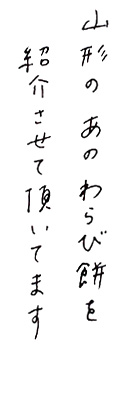 山形の あの わらび餅を
紹介させて頂いてます